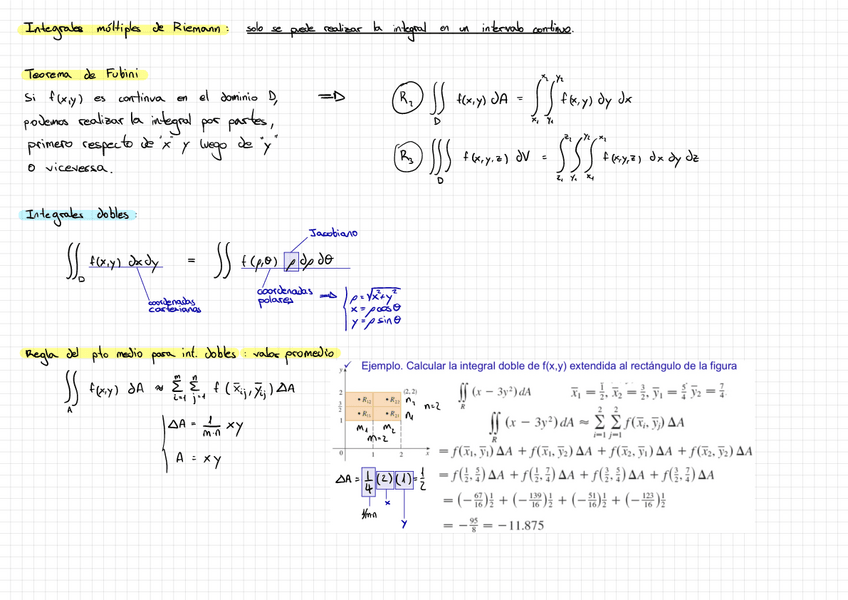 Integrales múltiples de Riemann: solo se puede realizar la integral en un intervalo continuo.
Teorema de Fubini
Si f(x,y) es continua en el dominio D, ⇒ R₂ ∬_D f(x,y) dA = ∫_{x₁}^{x₂} ∫_{y₁}^{y₂} f(x,y) dy dx
podemos realizar la integral por partes,
primero respecto de "x" y luego de "y"
o viceversa.
R₃ ∭_D f(x,y,z) dV = ∫_{z₁}^{z₂} ∫_{y₁}^{y₂} ∫_{x₁}^{x₂} f(x,y,z) dx dy dz
Integrales dobles:
Jacobiano
∬_D f(x,y) dx dy = ∬ f(ρ,θ) ρ dρ dθ
coordenadas cartesianas
coordenadas polares ⇒
ρ = √x²+y²
x = ρ cos θ
y = ρ sin θ
Regla del pto medio para int. dobles: valor promedio
∬_A f(x,y) dA ≈ Σ_{i=1}^{m} Σ_{j=1}^{n} f(x̄ij, ȳij) ΔA
ΔA = 1/m·n xy
A = xy
✓ Ejemplo. Calcular la integral doble de f(x,y) extendida al rectángulo de la figura
y
2
3/2
1
0 1 2 x
(2, 2)
R₁₂ R₂₂ n₂
R₁₁ R₂₁ n₁
n=2
m₁ m₂
m=2
∬_R (x − 3y²) dA x̄₁ = 1/2, x̄₂ = 3/2, ȳ₁ = 5/4 ȳ₂ = 7/4
∬_R (x − 3y²) dA ≈ Σ_{i=1}^{2} Σ_{j=1}^{2} f(x̄ᵢ, ȳⱼ) ΔA
= f(x̄₁, ȳ₁) ΔA + f(x̄₁, ȳ₂) ΔA + f(x̄₂, ȳ₁) ΔA + f(x̄₂, ȳ₂) ΔA
= f(1/2, 5/4) ΔA + f(1/2, 7/4) ΔA + f(3/2, 5/4) ΔA + f(3/2, 7/4) ΔA
= (−67/16)1/2 + (−139/16)1/2 + (−51/16)1/2 + (−123/16)1/2
= −95/8 = −11.875
ΔA = 1/4 (2) (1) = 1/2
1/m·n
x
y